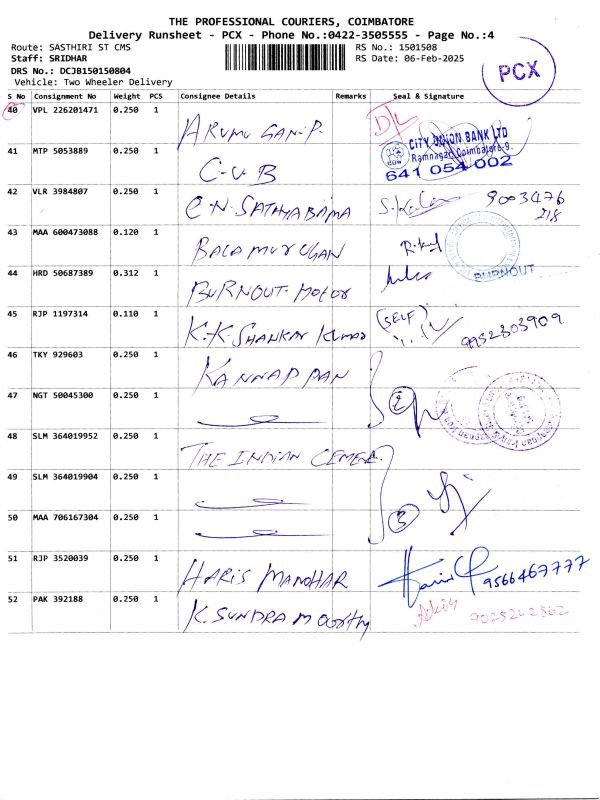 THE PROFESSIONAL COURIERS, COIMBATORE
Delivery Runsheet - PCX - Phone No.:0422-3505555 - Page No.:4
Route: SASTHIRI ST CMS
RS No.: 1501508
Staff: SRIDHAR
RS Date: 06-Feb-2025
DRS No.: DCJB150150804
Vehicle: Two Wheeler Delivery
PCX
S No Consignment No Weight PCS Consignee Details Remarks Seal & Signature
40 VPL 226201471 0.250 1 ARUMUGAN.P. D/L
CITY UNION BANK LTD
Ramnagar, Coimbatore-9.
641 054 002
41 MTP 5053889 0.250 1 C-U-B
42 VLR 3984807 0.250 1 C.N. SATHYABAMA 9003476
218
43 MAA 600473088 0.120 1 BALAMURUGAN
44 HRD 50687389 0.312 1 BURNOUT. MOTOR BURNOUT
45 RJP 1197314 0.110 1 K.K. SHANKAR KUMAR (SELF) 9952303909
46 TKY 929603 0.250 1 KANNAPPAN
47 NGT 50045300 0.250 1 2
48 SLM 364019952 0.250 1 THE INDIAN CEMER.
49 SLM 364019904 0.250 1
50 MAA 706167304 0.250 1 3
51 RJP 3520039 0.250 1 HARIS MANOHAR 9566467777
52 PAK 392188 0.250 1 K. SUNDRAMOORTHY 9025242362